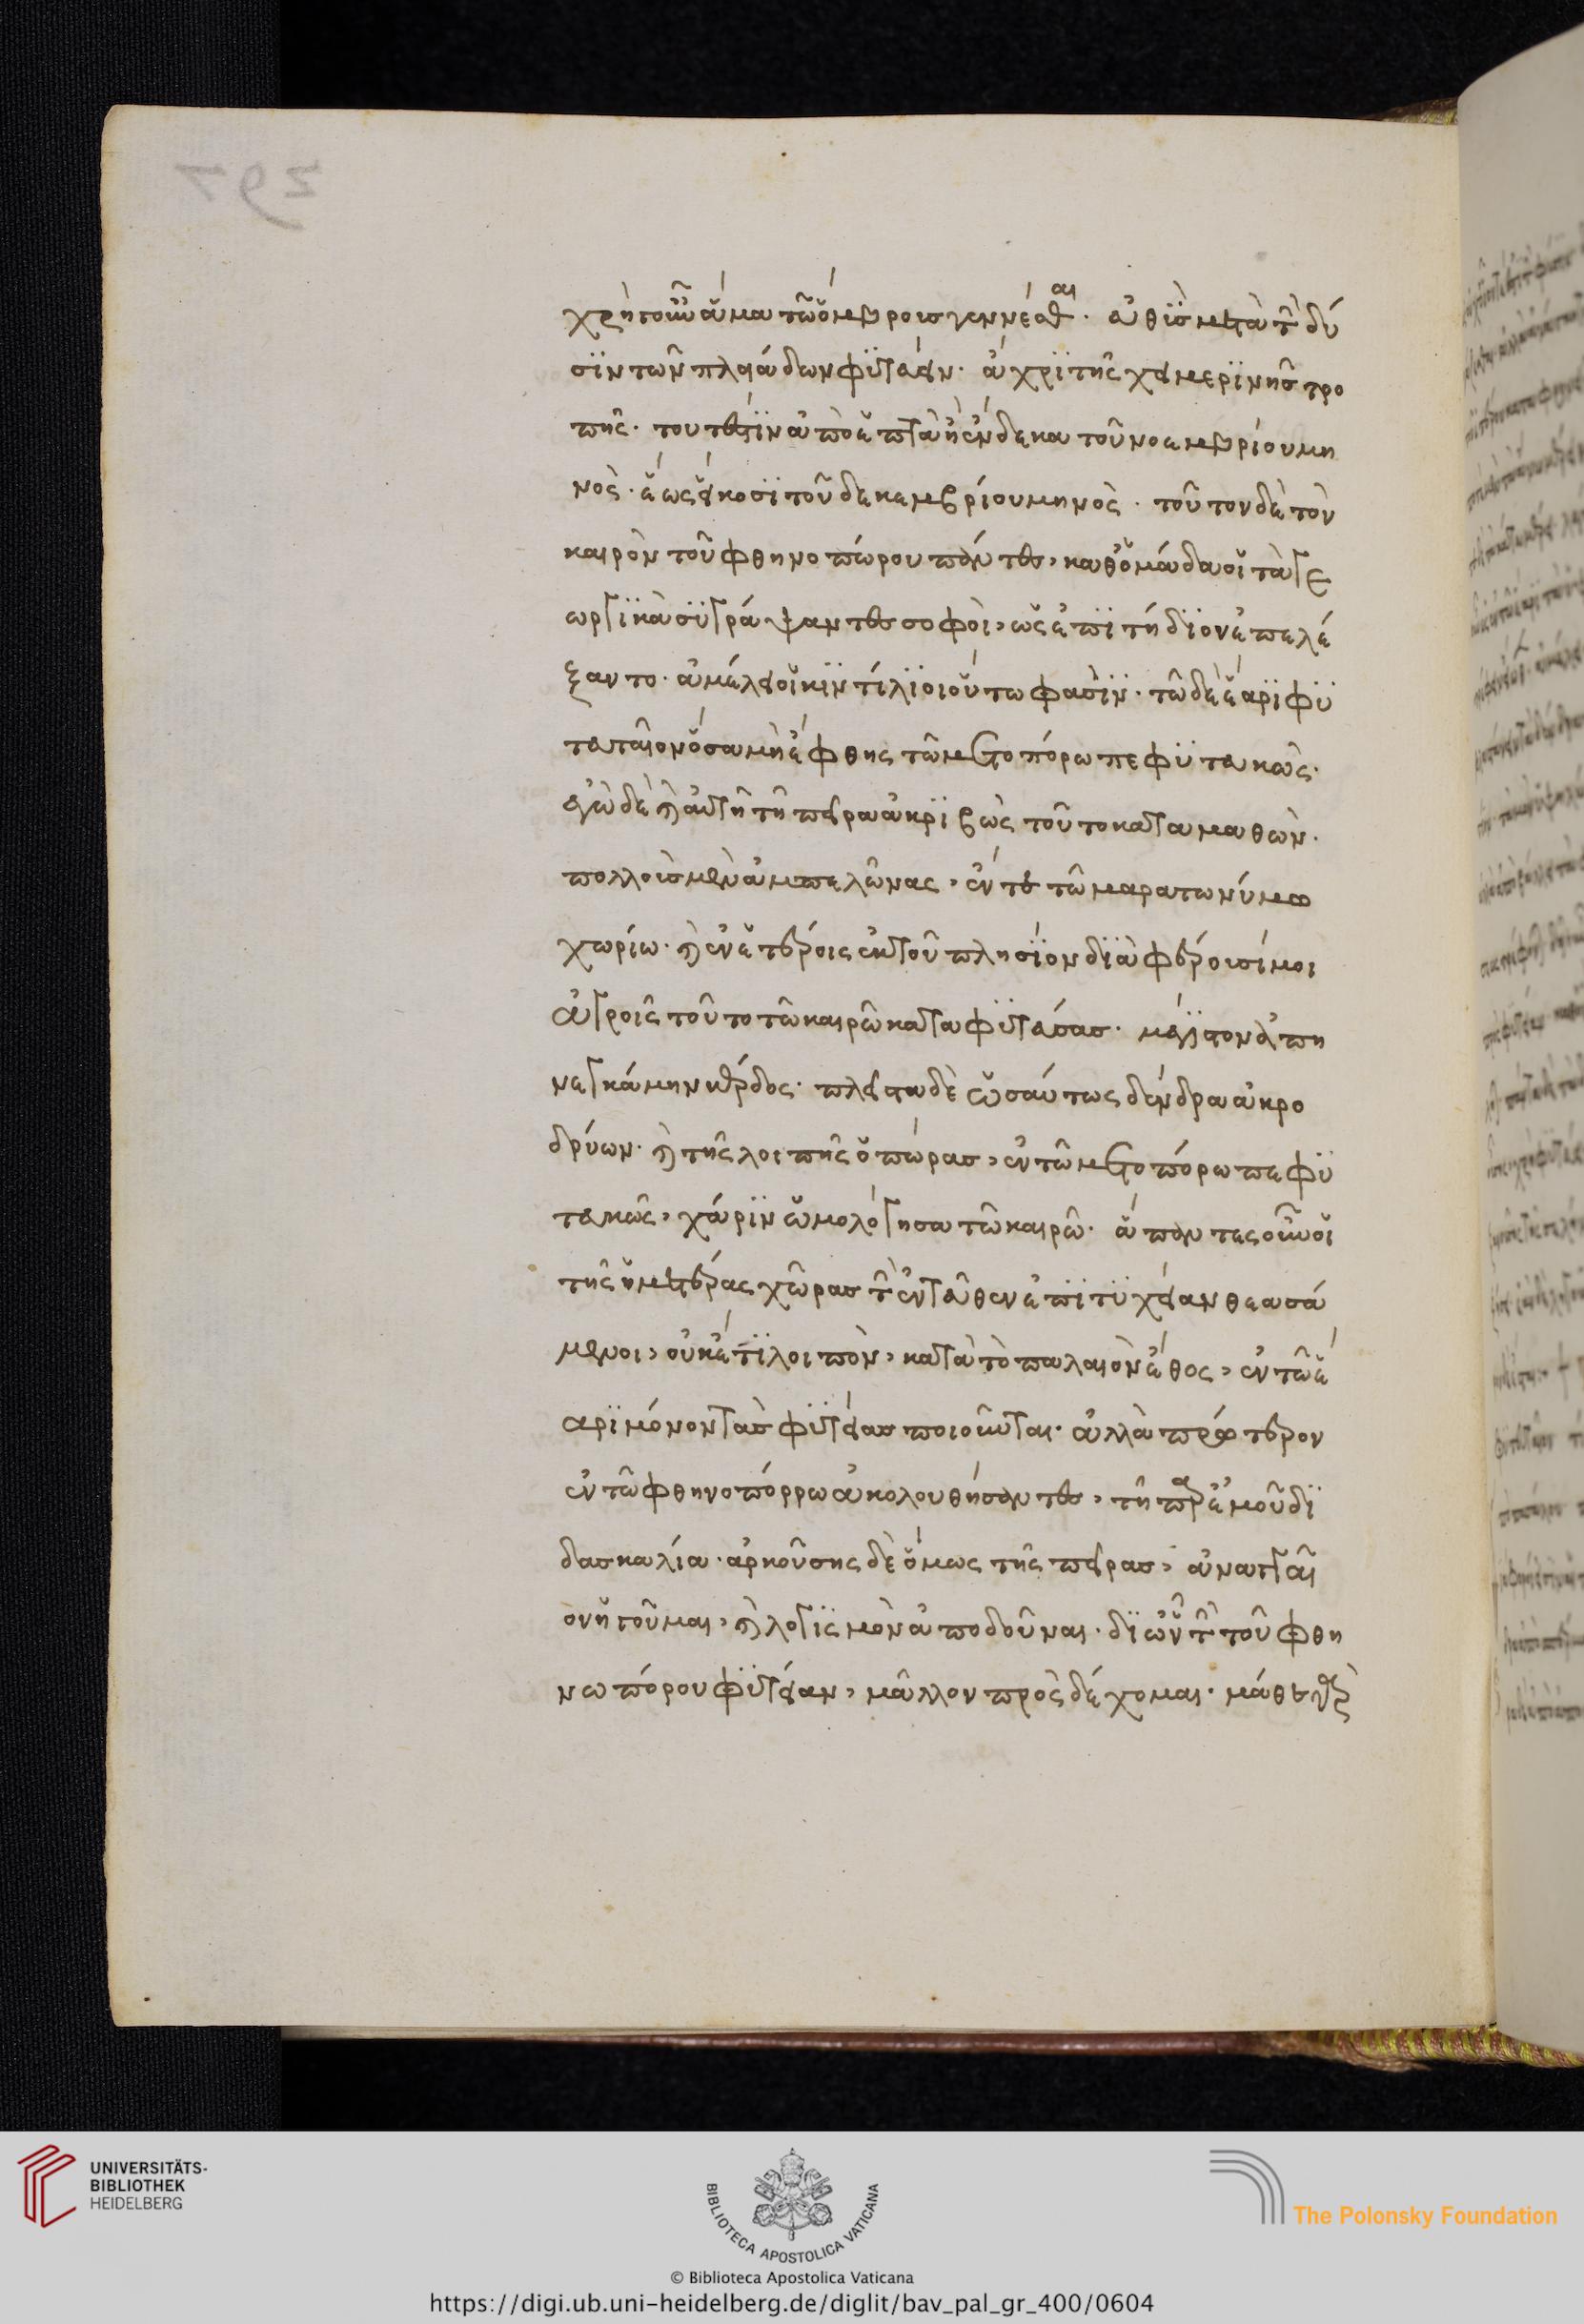 χρὴ τοὺν ἅμα τῶ ὄμβροισ γεννέσθαι. αὖθισ μετὰ τὴν δύ
σιν τῶν πλειάδων φυτεύειν. ἄχρι τῆς χειμερινῆσ τρο
πῆς. τουτέστιν ἀπὸ ἑπτὰ ἢ ἕνδεκα τοῦ νοεμβρίου μη
νὸς. ἕως εἴκοσι τοῦ δεκεμβρίου μηνὸς. τοῦτον δὲ τὸν
καιρὸν τοῦ φθηνοπώρου πάντες, καθ ὁμάδα οἱ τὰ γε
ωργικὰ συγράψαντεσ σοφοὶ, ὡς ἐπιτήδιον ἐπελέ
ξαντο. ἀμέλει οἱ κιντίλιοι οὕτω φασὶν. τῶ δὲ ἔαρι φυ
τευταῖον ὅσα μὴ ἔφθης τῶ μετοπόρω πεφυτευκὼς.
ἐγὼ δὲ καὶ αὐτῆ τῆ πείρα ἀκριβῶς τοῦτο καταμαθὼν.
πολλοὶσ μὲν ἀμπελῶνας, ἔν τε τῶ μαρατωνύμω
χωρίω. καὶ ἐν ἑτέροις ἐκ τοῦ πλησίον διαφέρουσί μοι
ἀγροῖς τοῦτο τῶ καιρῶ καταφυτεύσασ. μέγιστον ἀπη
νεγκάμην κέρδος. πλεῖστα δὲ ὡσαύτως δένδρα ἀκρο
δρύων. καὶ τῆς λοιπῆς ὀπώρασ, ἐν τῶ μετοπόρω πεφυ
τευκῶς, χάριν ὡμολόγησα τῶ καιρῶ. ἅπαντες οὖν οἱ
τῆς ἡμετέρας χώρασ τὴν ἐντεῦθεν ἐπιτυχείαν θεασά
μενοι, οὐκέτι λοιπὸν, κατὰ τὸ παλαιὸν ἔθος, ἐν τῶ ἔ
αρι μόνον τὰσ φυτείασ ποιοῦνται. ἀλλὰ πρότερον
ἐν τῶ φθηνοπόρρω ἀκολουθήσαντεσ, τῆ παρ ἐμοῦ δι
δασκαλία. ἀρκούσης δὲ ὅμως τῆς πείρασ, ἀναγκαῖ
ον ἡγοῦμαι, καὶ λογισμὸν ἀποδοῦναι. δι ὧν τὴν τοῦ φθη
νωπόρου φυτείαν, μᾶλλον προσδέχομαι. μάθε γὰρ
UNIVERSITÄTS-
BIBLIOTHEK
HEIDELBERG
BIBLIOTECA APOSTOLICA VATICANA
The Polonsky Foundation
© Biblioteca Apostolica Vaticana
https://digi.ub.uni-heidelberg.de/diglit/bav_pal_gr_400/0604